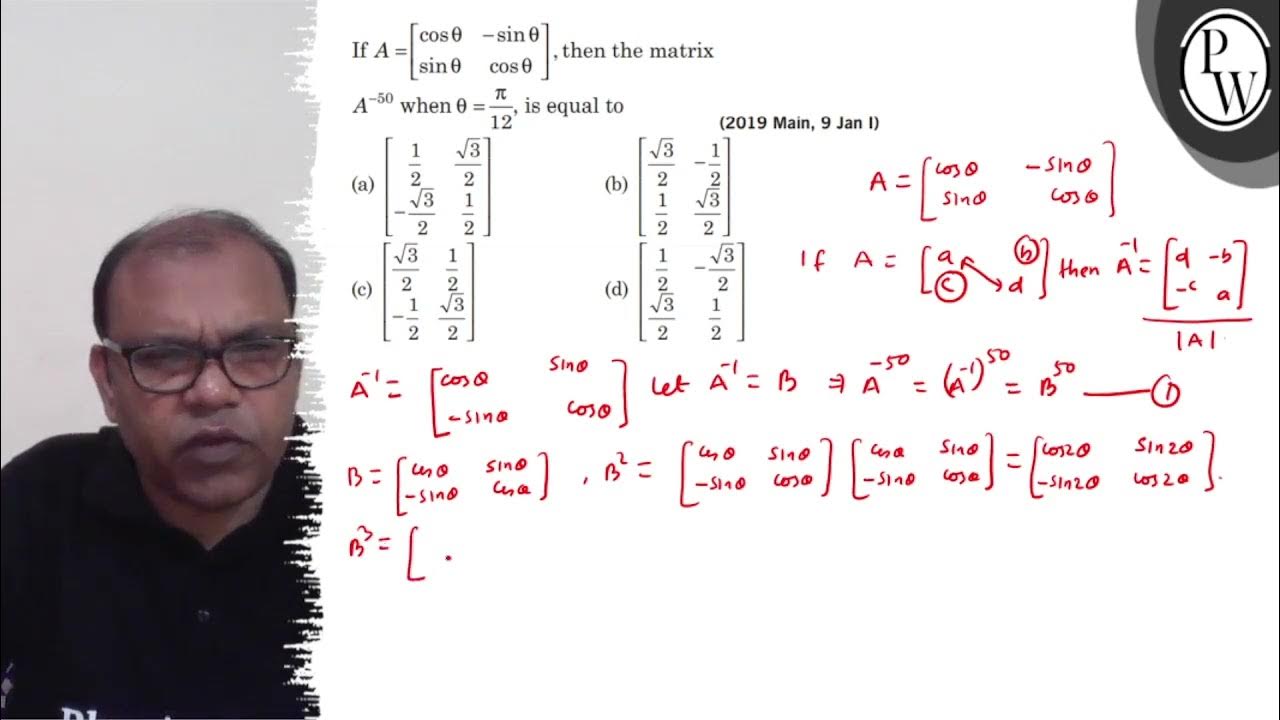 If A = [cosθ −sinθ
sinθ cosθ], then the matrix
A⁻⁵⁰ when θ = π/12, is equal to
(2019 Main, 9 Jan I)
(a) [1/2 √3/2
−√3/2 1/2]
(b) [√3/2 −1/2
1/2 √3/2]
(c) [√3/2 1/2
−1/2 √3/2]
(d) [1/2 −√3/2
√3/2 1/2]
PW
A = [cosθ −sinθ
sinθ cosθ]
If A = [a b
c d] then A⁻¹ = [d −b
−c a]
|A|
A⁻¹ = [cosθ sinθ
−sinθ cosθ] Let A⁻¹ = B ⇒ A⁻⁵⁰ = (A⁻¹)⁵⁰ = B⁵⁰ —— ①
B = [cosθ sinθ
−sinθ cosθ] , B² = [cosθ sinθ
−sinθ cosθ] [cosθ sinθ
−sinθ cosθ] = [cos2θ sin2θ
−sin2θ cos2θ].
B³ = [